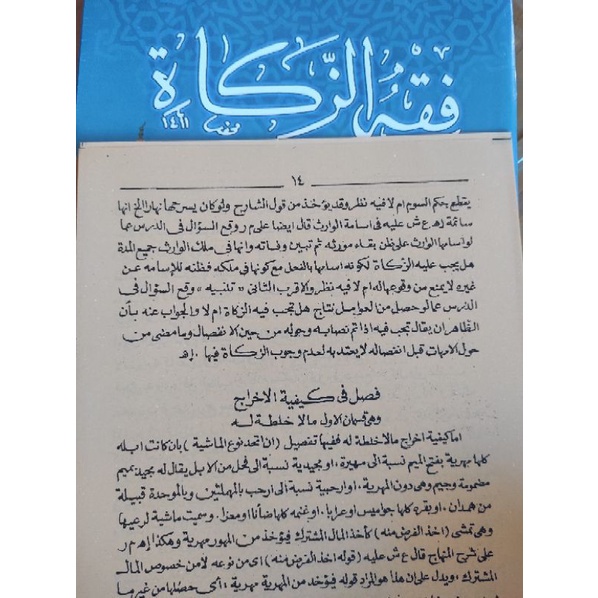 فقه الزكاة
١٤
يقطع بحكم السوم ام لا فيه نظر وقد يؤخذ من قول الشارح ولو كان يسرحها نهارا الخ انها
سائمة اهـ ع ش عليه فى اسامة الوارث قال ايضا على م ر وقع السؤال فى الدرس عما
لو اسامها الوارث على ظن بقاء مورثه ثم تبين وفاته وانها فى ملك الوارث جميع المدة
هل يجب عليه الزكاة لكونه اسامها بالفعل مع كونها فى ملكه فظنه للاسامه عن
غيره لا يمنع من وقوعها له ام لا فيه نظر والاقرب الثانى « تنبيه » وقع السؤال فى
الدرس عما لو حصل من العوامل نتاج هل تجب فيه الزكاة ام لا والجواب عنه بأن
الظاهر ان يقال تجب فيه اذا تم نصابه وحوله من حين الانفصال وما مضى من
حول الامهات قبل انفصاله لا يعتد به لعدم وجوب الزكاة فيها . اهـ
فصل فى كيفية الاخراج
وهى قسمان الاول مالا خلطة له
اما كيفية اخراج مالا خلطة له ففيها تفصيل ( ان اتحد نوع الماشية ) بان كانت ابله
كلها مهرية بفتح الميم نسبة الى مهيرة . او مجيدية نسبة الى فحل من الابل يقال له مجيد بميم
مضمومة وجيم وهى دون المهرية . او ارحبية نسبة الى ارحب بالمهملتين وبالموحدة قبيلة
من همدان . او بقره كلها جواميس او عرابا . او غنمه كلها ضأنا او معزا . وسميت ماشية لرعيها
وهى تمشى ( اخذ الفرض منه ) كأخذ المال المشترك فيؤخذ من المهور مهرية وهكذا اهـ م ر
على شرح المنهاج قال ع ش عليه ( قوله اخذ الفرض منه ) اى من نوعه لا من خصوص المال
المشترك . ويدل على ان هذا هو المراد قوله فيؤخذ من المهرية مهرية . اى حصلها من غير ما